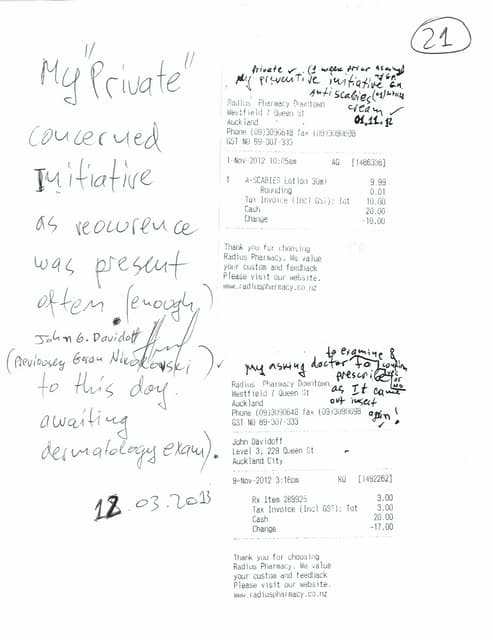 21
My "Private"
concerned
Initiative
as reowrence
was present
often (enough)
John G. Davidoff
(Previously Goran Nikolovski)
to this day.
awaiting
dermatology exam).
12.03.2013
Private ✓ (1 week prior
My preventive initiative on
Antiscabies
cream ✓
01.11.12
Radius Pharmacy Downtown
Westfield 7 Queen St
Auckland
Phone (09)3090648 fax (09)3090698
GST NO 69-307-333
1-Nov-2012 10:05am AG [1486396]
1 A-SCABIES Lotion 30ml 9.99
Rounding 0.01
Tax Invoice (Incl GST): Tot 10.00
Cash 20.00
Change -10.00
Thank you for choosing
Radius Pharmacy. We value
your custom and feedback
Please visit our website.
www.radiuspharmacy.co.nz
to examine &
My asking doctor to confirm
prescribe
as It came
out insect
again!
Radius Pharmacy Downtown
Westfield 7 Queen St
Auckland
Phone (09)3090648 fax (09)3090698
GST NO 69-307-333
John Davidoff
Level 3, 229 Queen St
Auckland City
9-Nov-2012 3:16pm RG [1492262]
Rx Item 269925 3.00
Tax Invoice (Incl GST): Tot 3.00
Cash 20.00
Change -17.00
Thank you for choosing
Radius Pharmacy. We value
your custom and feedback
Please visit our website.
www.radiuspharmacy.co.nz